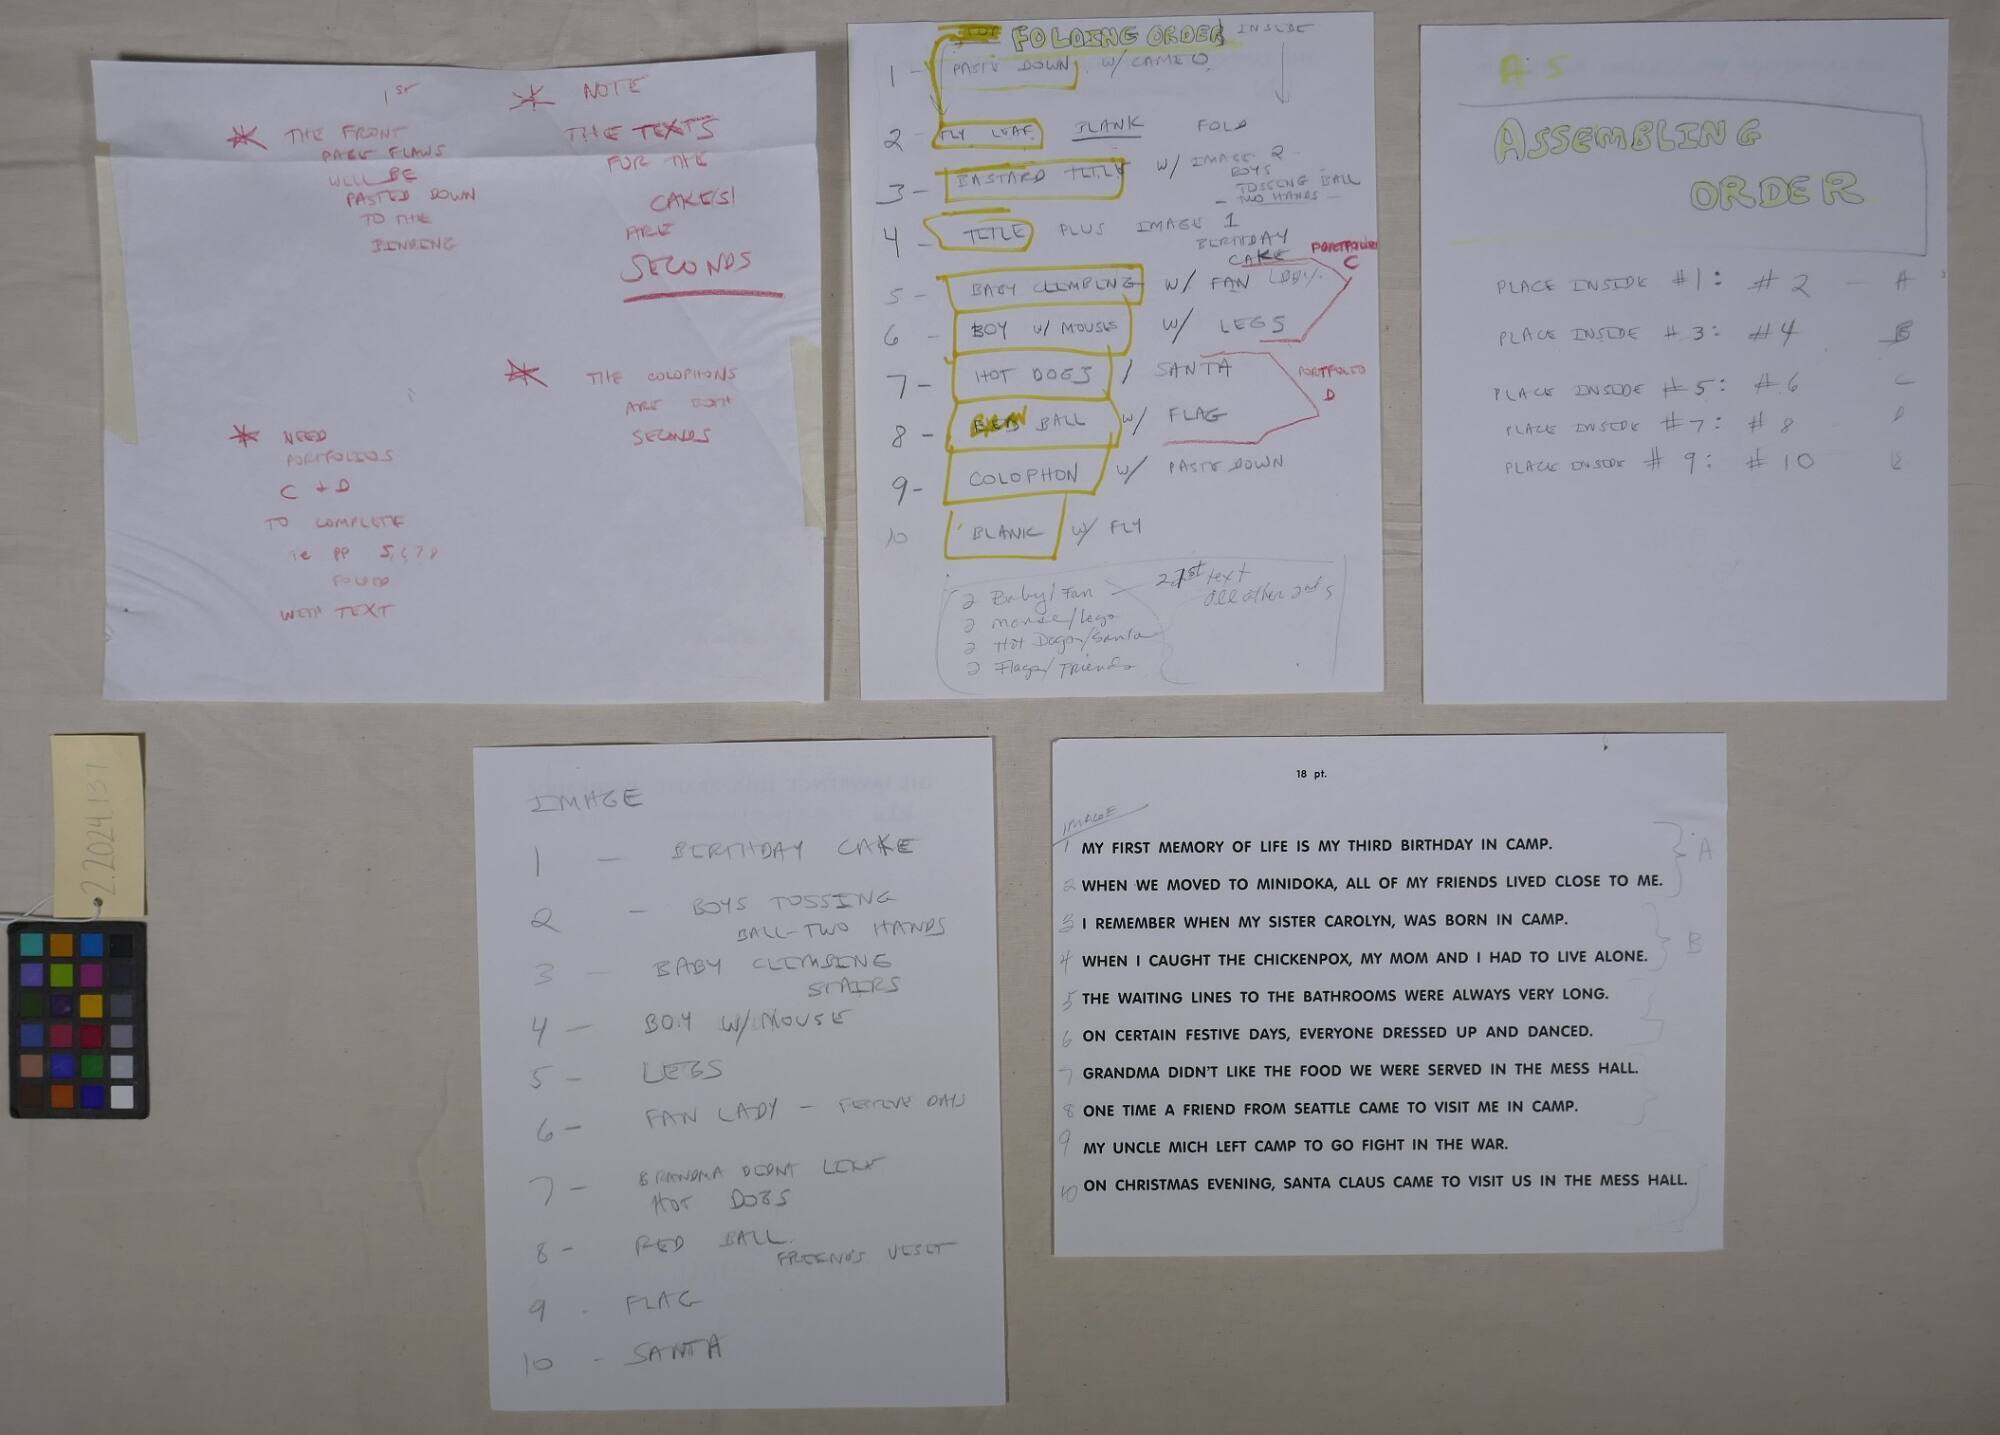 1ST
* THE FRONT
PAGE FLAWS
WILL BE
PASTED DOWN
TO THE
BINDING
* NOTE
THE TEXTS
FOR THE
CAKE(S)
ARE
SECONDS
* THE COLOPHONS
ARE BOTH
SECONDS
* NEED
PORTFOLIOS
C + D
TO COMPLETE
ie PP 5,6,7,8
FOLDED
WITH TEXT
FOLDING ORDER INSIDE
1 - PASTE DOWN W/ CAMEO
2 - FLY LEAF BLANK FOLD
3 - BASTARD TITLE W/ IMAGE 2
BOYS
TOSSING BALL
- TWO HANDS -
4 - TITLE PLUS IMAGE 1
BIRTHDAY
CAKE
PORTFOLIO
C
5 - BABY CLIMBING W/ FAN LADY
6 - BOY W/ MOUSE W/ LEGS
7 - HOT DOGS / SANTA
PORTFOLIO
D
8 - BALL W/ FLAG
9 - COLOPHON W/ PASTE DOWN
10 BLANK W/ FLY
2 Baby/Fan
2 Mouse/Legs
2 Hot Dogs/Santa
2 Flags/Friends
2 1st text
all other 2nd s
A S
ASSEMBLING
ORDER
PLACE INSIDE #1: #2 - A
PLACE INSIDE #3: #4 B
PLACE INSIDE #5: #6 C
PLACE INSIDE #7: #8 D
PLACE INSIDE #9: #10 E
2.2024.137
IMAGE
1 - BIRTHDAY CAKE
2 - BOYS TOSSING
BALL-TWO HANDS
3 - BABY CLIMBING
STAIRS
4 - BOY W/MOUSE
5 - LEGS
6 - FAN LADY - FESTIVE DAYS
7 - GRANDMA DIDNT LIKE
HOT DOGS
8 - RED BALL.
FRIENDS VISIT
9 - FLAG
10 - SANTA
18 pt.
IMAGE
1 MY FIRST MEMORY OF LIFE IS MY THIRD BIRTHDAY IN CAMP.
2 WHEN WE MOVED TO MINIDOKA, ALL OF MY FRIENDS LIVED CLOSE TO ME.
A
3 I REMEMBER WHEN MY SISTER CAROLYN, WAS BORN IN CAMP.
4 WHEN I CAUGHT THE CHICKENPOX, MY MOM AND I HAD TO LIVE ALONE.
B
5 THE WAITING LINES TO THE BATHROOMS WERE ALWAYS VERY LONG.
6 ON CERTAIN FESTIVE DAYS, EVERYONE DRESSED UP AND DANCED.
7 GRANDMA DIDN'T LIKE THE FOOD WE WERE SERVED IN THE MESS HALL.
8 ONE TIME A FRIEND FROM SEATTLE CAME TO VISIT ME IN CAMP.
9 MY UNCLE MICH LEFT CAMP TO GO FIGHT IN THE WAR.
10 ON CHRISTMAS EVENING, SANTA CLAUS CAME TO VISIT US IN THE MESS HALL.